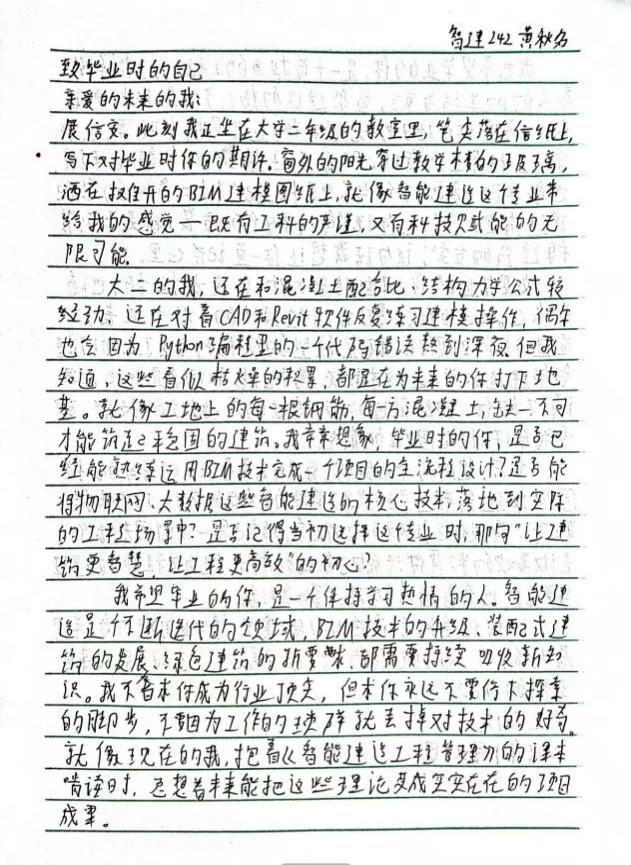 智建242 黄秋名
致毕业时的自己
亲爱的未来的我:
展信安。此刻我正坐在大学二年级的教室里,笔尖落在信纸上,
写下对毕业时你的期许。窗外的阳光穿过教学楼的玻璃,
洒在摊开的BIM建模图纸上,就像智能建造这个专业带
给我的感觉—既有工科的严谨,又有科技赋能的无
限可能。
大二的我,还在和混凝土配合比、结构力学公式较
经劲,还在对着CAD和Revit软件反复练习建模操作,偶尔
也会因为Python编程里的一个代码错误熬到深夜。但我
知道,这些看似枯燥的积累,都是在为未来的你打下地
基。就像工地上的每一根钢筋,每一方混凝土,缺一不可
才能筑起稳固的建筑。我常常想象,毕业时的你,是否已
经能熟练运用BIM技术完成一个项目的全流程设计?是否能
将物联网、大数据这些智能建造的核心技术,落地到实际
的工程场景中?是否记得当初选择这个专业时,那句"让建
筑更智慧,让工程更高效"的初心?
我希望毕业的你,是一个保持学习热情的人。智能建
造是个不断迭代的领域,BIM技术的升级、装配式建
筑的发展、绿色建筑的新要求,都需要持续吸收新知
识。我不奢求你成为行业顶尖,但求你永远不要停下探索
的脚步,不要因为工作的琐碎就丢掉对技术的好奇。
就像现在的我,抱着《智能建造工程管理》的课本
啃读时,总想着未来能把这些理论变成实实在在的项目
成果。